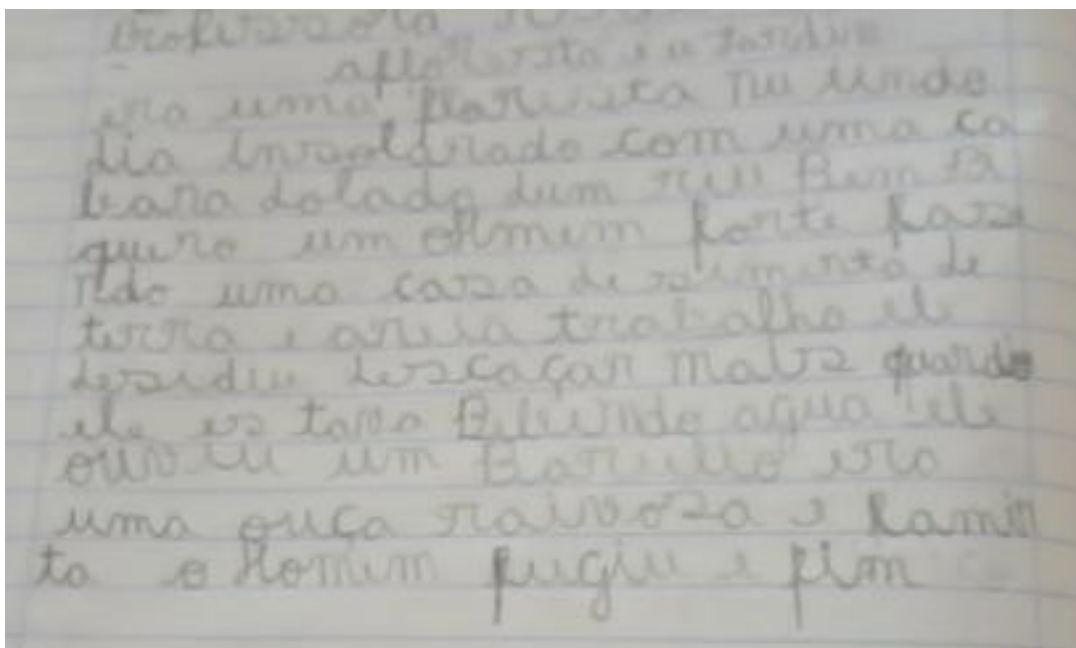 professora
afloresta e u
era uma floresta nu lindo
dia insolarado com uma ca
bana dolado dum riu Bem
queno um omem forte faze
ndo uma casa de simento de
terra e areia trabalho ele
desidiu descaçar mais quando
ele es tava Bibindo agua ele
ouviu um Barulho era
uma ouça raivoza e famin
ta o Homem fugiu e fim